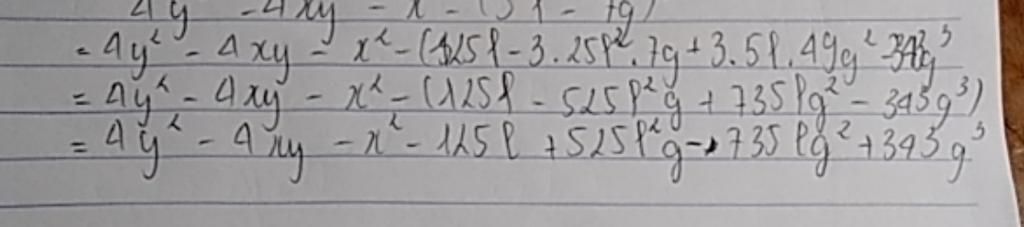 4y² - 4xy - x² - (5l - 7g)
= 4y² - 4xy - x² - (125l - 3.25l².7g + 3.5l.49g² - 343g³
= 4y² - 4xy - x² - (125l - 525l²g + 735lg² - 343g³)
= 4y² - 4xy - x² - 125l + 525l²g - 735lg² + 343g³